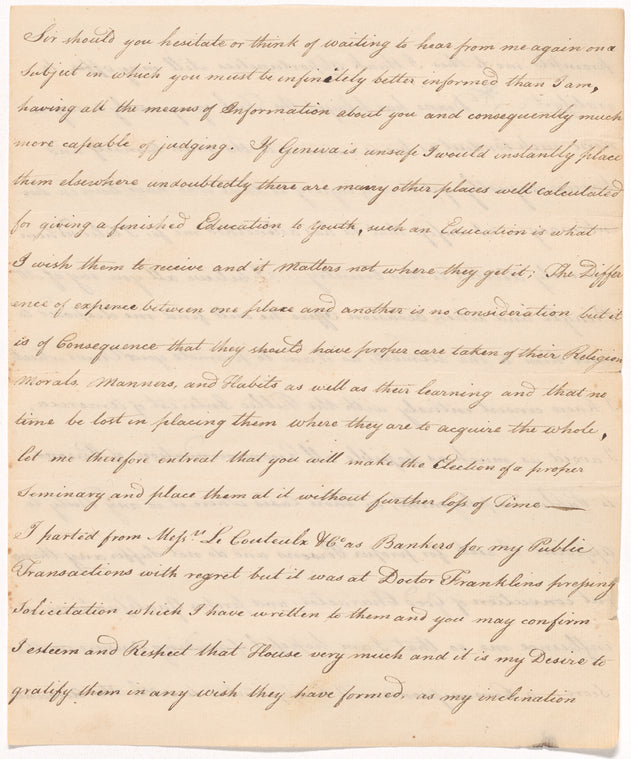 Sir should you hesitate or think of waiting to hear from me again on a
Subject in which you must be infinitely better informed than I am,
having all the means of Information about you and consequently much
more capable of judging. If Geneva is unsafe I would instantly place
them elsewhere undoubtedly there are many other places well calculated
for giving a finished Education to Youth, such an Education is what
I wish them to receive and it Matters not where they get it; The Differ
ence of expence between one place and another is no consideration but it
is of Consequence that they should have proper care taken of their Religion
Morals, Manners, and Habits as well as their learning and that no
time be lost in placing them where they are to acquire the whole,
let me therefore entreat that you will make the Election of a proper
Seminary and place them at it without further loss of Time —
I parted from Mess.rs Le Couteulx & Co as Bankers for my Public
Transactions with regret but it was at Doctor Franklens pressing
Solicitation which I have written to them and you may confirm
I esteem and Respect that House very much and it is my Desire to
gratify them in any wish they have formed, as my inclination